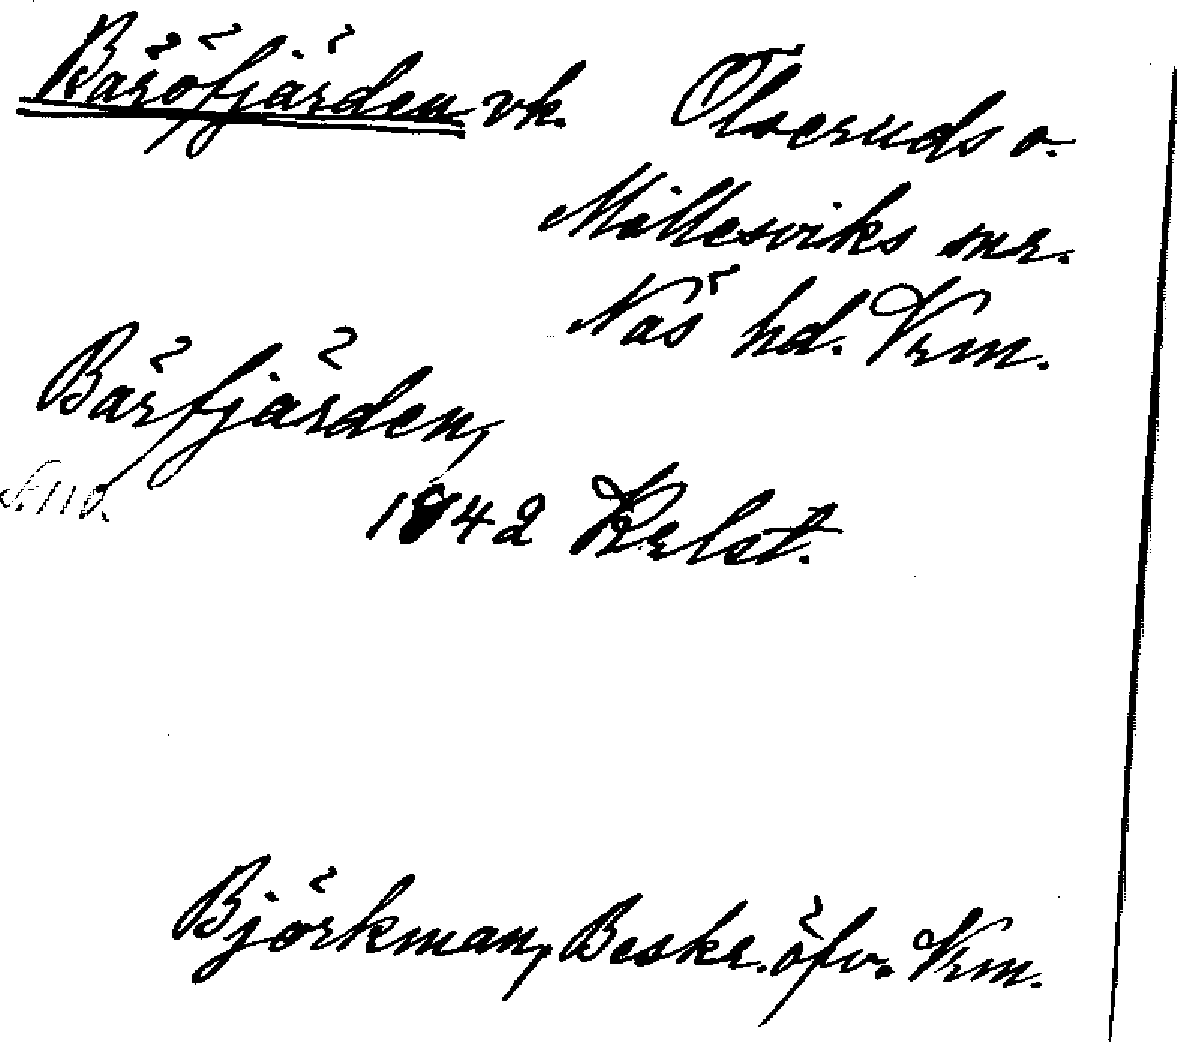 Bäröfjärden vk. Ölseruds o.
Millesviks snr.
Näs hd. Vrm.
Bärfjärden,
1842 Krlst.
Björkman, Beskr. öfv. Vrm.